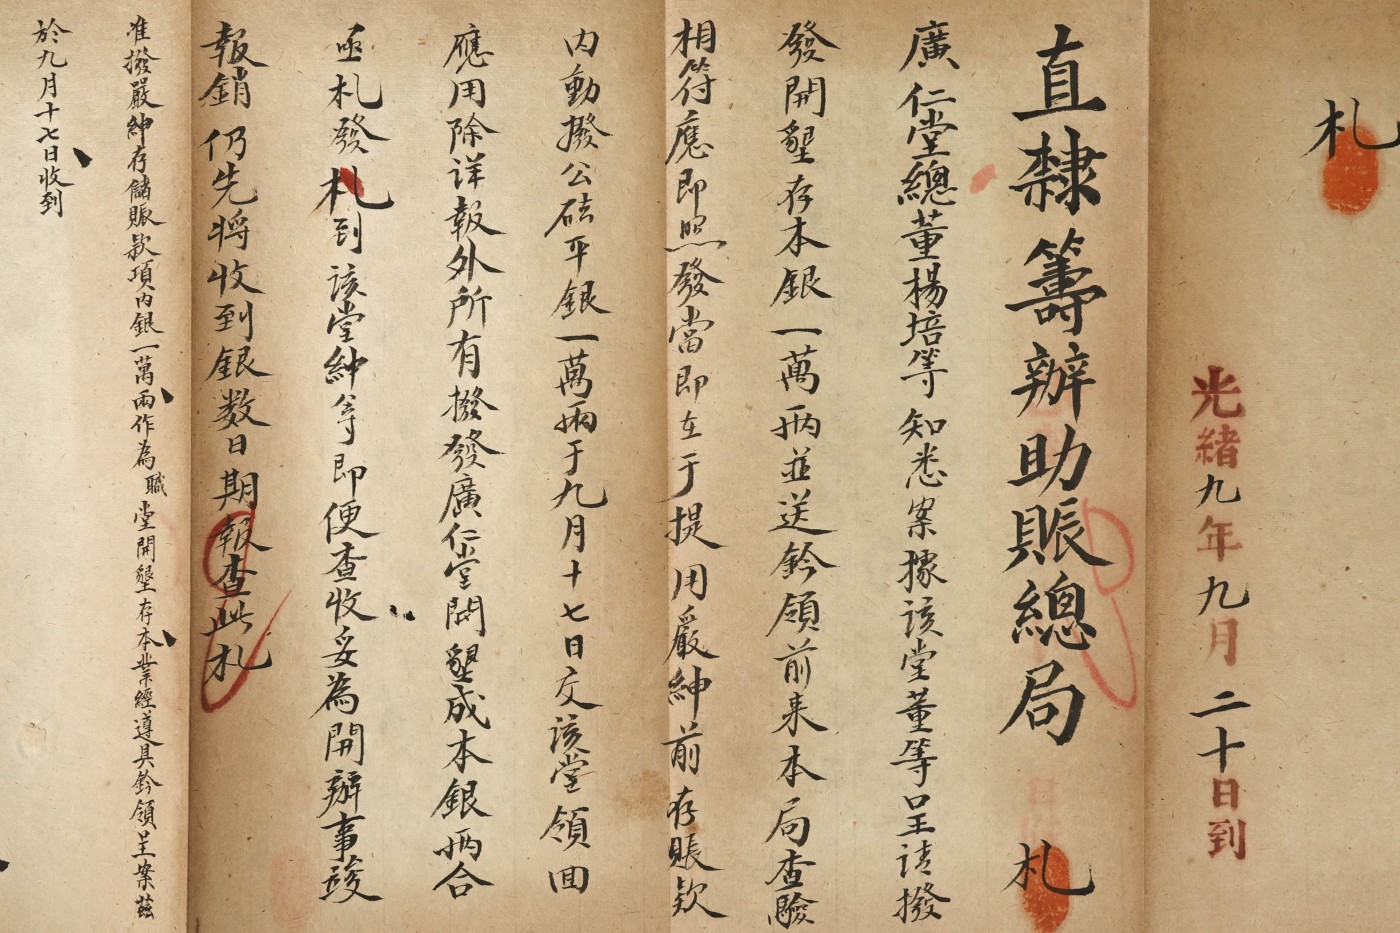 札
光緒九年九月二十日到
直隸籌辦助賑總局 札
廣仁堂總董楊培等知悉案據該堂董等呈請撥
發開墾存本銀一萬兩並送鈐領前来本局查驗
相符應即照發當即在于提用嚴紳前存賑款
內動撥公砝平銀一萬兩于九月十七日交該堂領回
應用除詳報外所有撥發廣仁堂開墾成本銀兩合
亟札發札到該堂紳等即便查收妥為開辦事竣
報銷仍先將收到銀数日期報查此札
准撥嚴紳存儲賬款項內銀一萬兩作為職堂開墾存本業經遵具鈐領呈案茲
於九月十七日收到